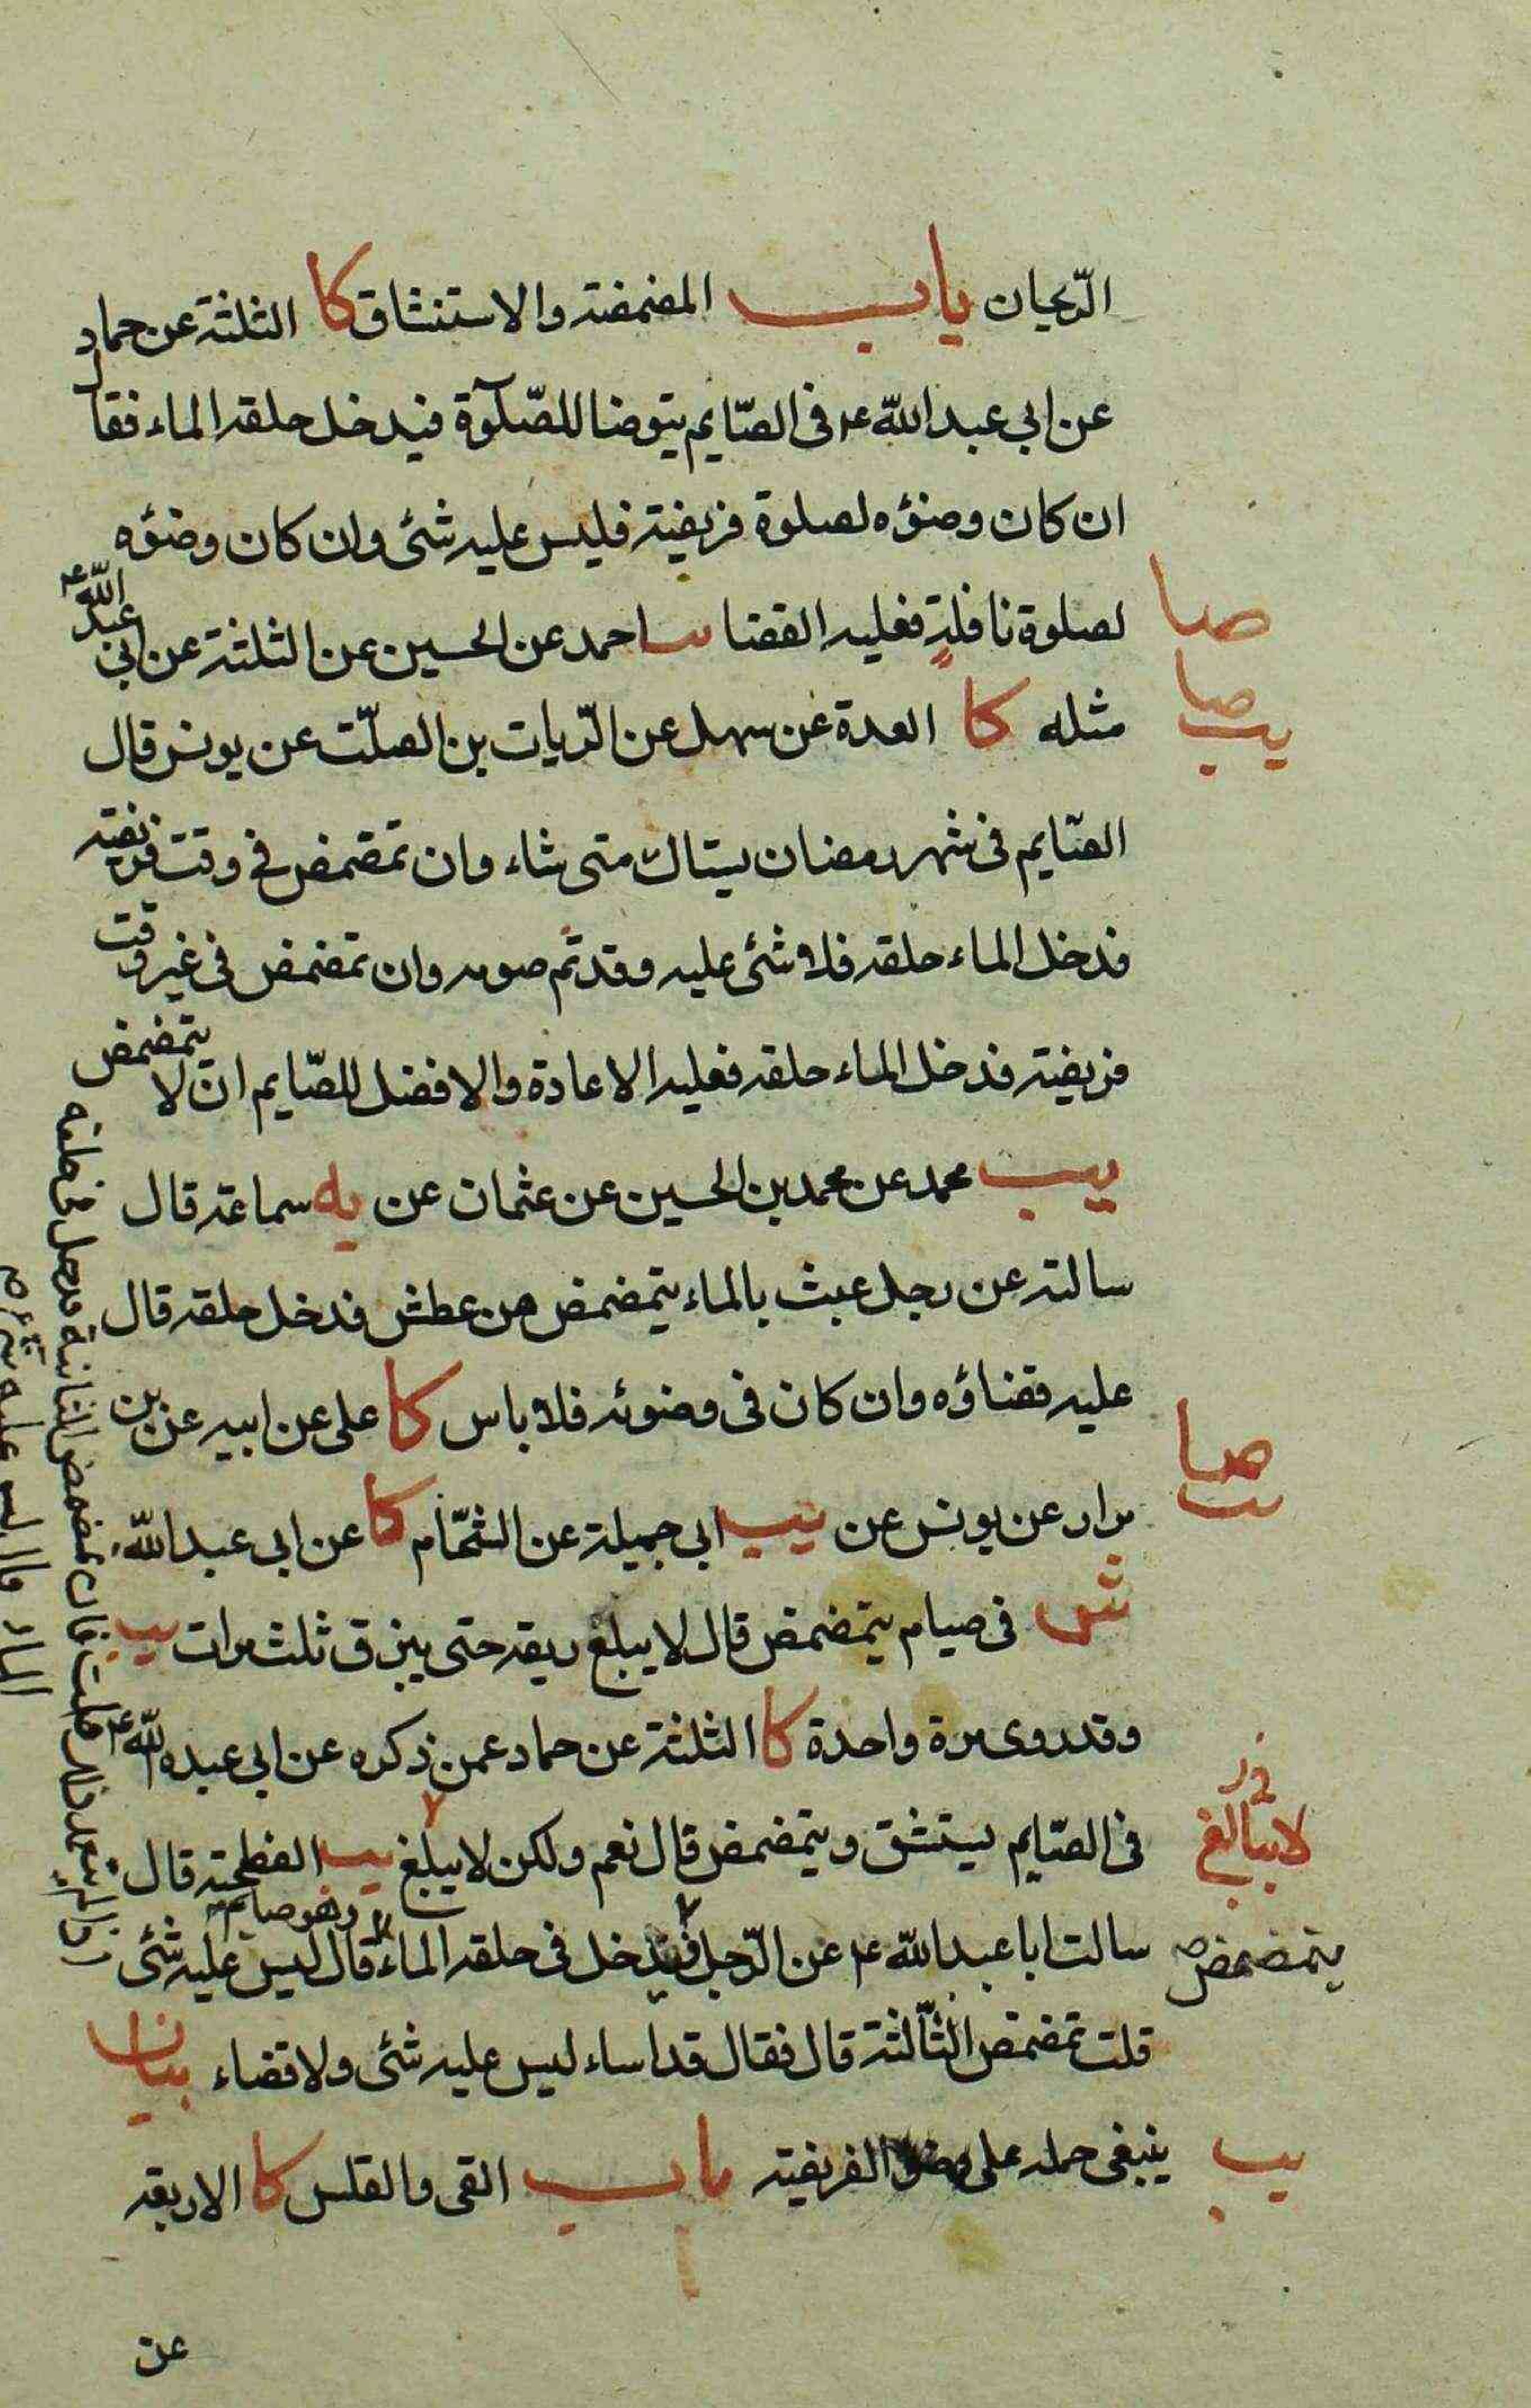 الرّيحان باب المضمضة والاستنشاق كا الثلثة عن حماد
عن ابي عبد الله ع في الصّايم يتوضا للصّلوة فيدخل حلقه الماء فقال
ان كان وضؤه لصلوة فريضة فليس عليه شئ وان كان وضؤه
لصلوة نافلة فعليه القضا يب احمد عن الحسين عن الثلثة عن ابي عبد الله ع
صا
مثله كا العدة عن سهل عن الرّيان بن الصلّت عن يونس قال
صا
يب
الصّايم في شهر رمضان يستاك متى شاء وان تمضمض في وقت فريضة
فدخل الماء حلقه فلا شئ عليه وقد تم صومه وان تمضمض في غير وقت
فريضة فدخل الماء حلقه فعليه الاعادة والافضل للصّايم ان لا يتمضمض
يب محمد عن محمد بن الحسين عن عثمان عن يه سماعة قال
سالته عن رجل عبث بالماء يتمضمض من عطش فدخل حلقه قال
عليه قضاؤه وان كان في وضوئه فلا باس كا علي عن ابيه عن بن
صا
يب
مرار عن يونس عن يب ابي جميلة عن الشحّام كا عن ابي عبد الله ع
ش في صيام يتمضمض قال لا يبلع ريقه حتى يبزق ثلث مرات يب
وقد روى مرة واحدة كا الثلثة عن حماد عمن ذكره عن ابي عبد الله ع
في الصّايم يستنشق ويتمضمض قال نعم ولكن لا يبلغ يب الفطحية قال
لا يبالغ
سالت ابا عبد الله ع عن الرّجل فيدخل في حلقه الماء وهو صايم قال ليس عليه شئ
يتمضمض
قلت تمضمض الثّالثة قال فقال قد اساء ليس عليه شئ ولا قضاء بيان
ينبغي حمله على وضوء الفريضة باب القى والقلس كا الاربعة
يب
عن
قلت فان تمضمض الثانية فدخل في حلقه
الماء قال ليس عليه شئ